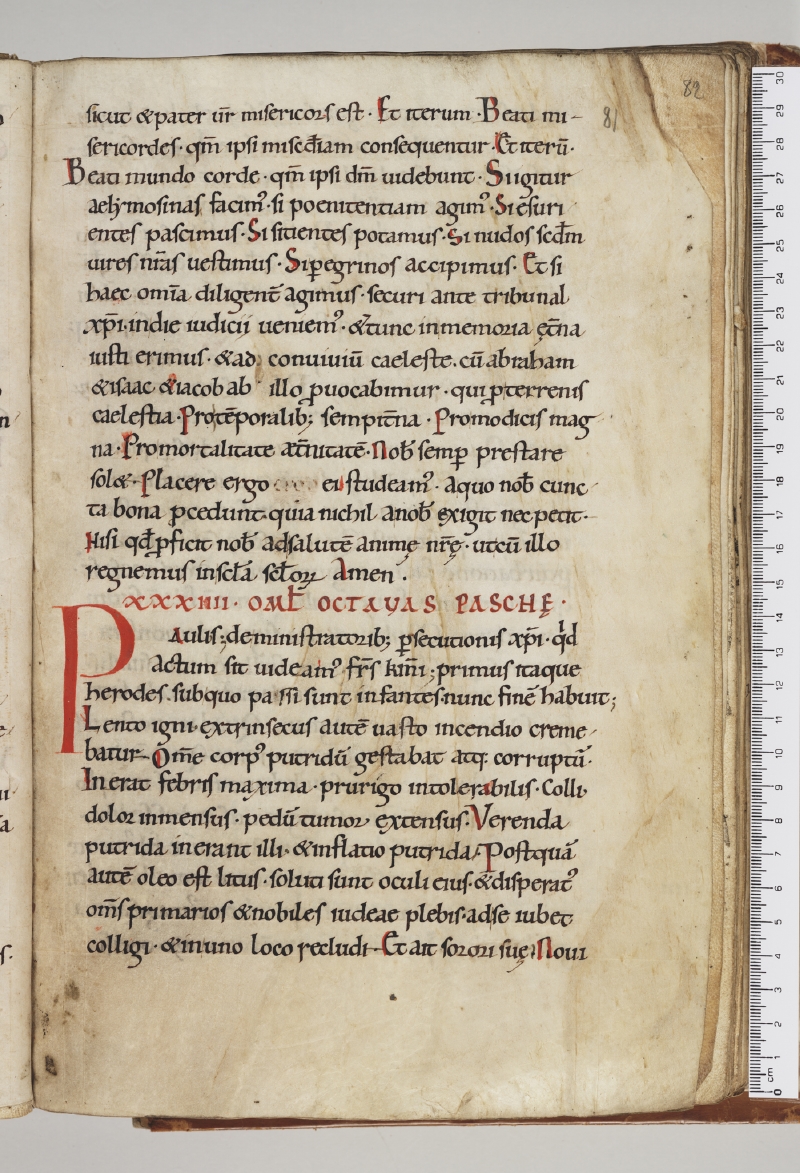 82
81
sicut & pater ur̄ misericors est · Et iterum · Beati mi-
sericordes · qm̄ ipsi misc̄diam consequentur · Et iterū ·
Beati mundo corde · qm̄ ipsi dm̄ uidebunt · Si igitur
aelymosinas facim᾽ · si poenitentiam agim᾽ · Si esuri
entes pascimus · Si sitientes potamus · Si nudos scd̄m
uires nr̄as uestimus · Si ꝑegrinos accipimus · Et si
haec omīa diligent̄ agimus · securi ante tribunal
xp̄i · in die iudicii ueniem᾽ · & tunc in memoria et̄na
iusti erimus · & ad conuiuiū caeleste · cū abraham
& isaac & iacob ab illo ꝓuocabimur · qui ꝓ terrenis
caelestia · Pro tēporalib; sempit̄na · Pro modicis mag
na · Pro mortalitate aet̄nitatē · Nob̄ semꝑ prestare
sol& · Placere ergo ei studeam᾽ · a quo nob̄ cunc
ta bona ꝓcedunt · quia nichil a nob̄ exigit nec petit ·
Nisi qd̄ ꝓficit nob̄ ad salutē animę nr̄ę · ut cū illo
regnemus in sc̄la sc̄loꝝ Amen ·
XXXIIII · OML̄ OCTAVAS PASCHĘ ·
Paulis; de ministratorib; ꝑsecutionis xp̄i · qd̄
actum sit uideam᾽ fr̄s km̄i; primus itaque
herodes · sub quo passi sunt infantes · nunc finē habuit;
Lento igni · extrinsecus autē uasto incendio creme
batur · Om̄e corp᾽ putridū gestabat atq: corruptū ·
Inerat febris maxima · prurigo intolerabilis · Colli
dolor inmensus · pedū tumor extensus · Verenda
putrida inerant illi · & inflatio putrida / Postquā
autē oleo est litus · soluti sunt oculi eius · & disperat᾽
om̄s primarios & nobiles iudeae plebis · ad se iubet
colligi · & in uno loco recludi · Et ait sorori suę · Noui